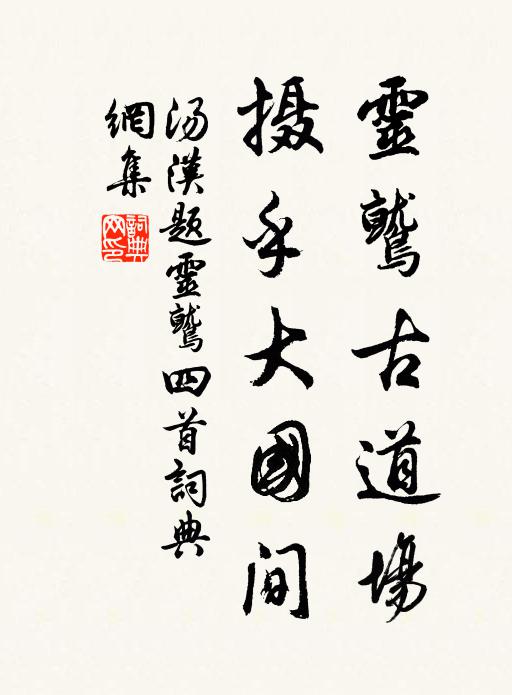 靈鷲古道場
摄乎大國间
汤漢题靈鷲四首詞典
網集
詞典網印